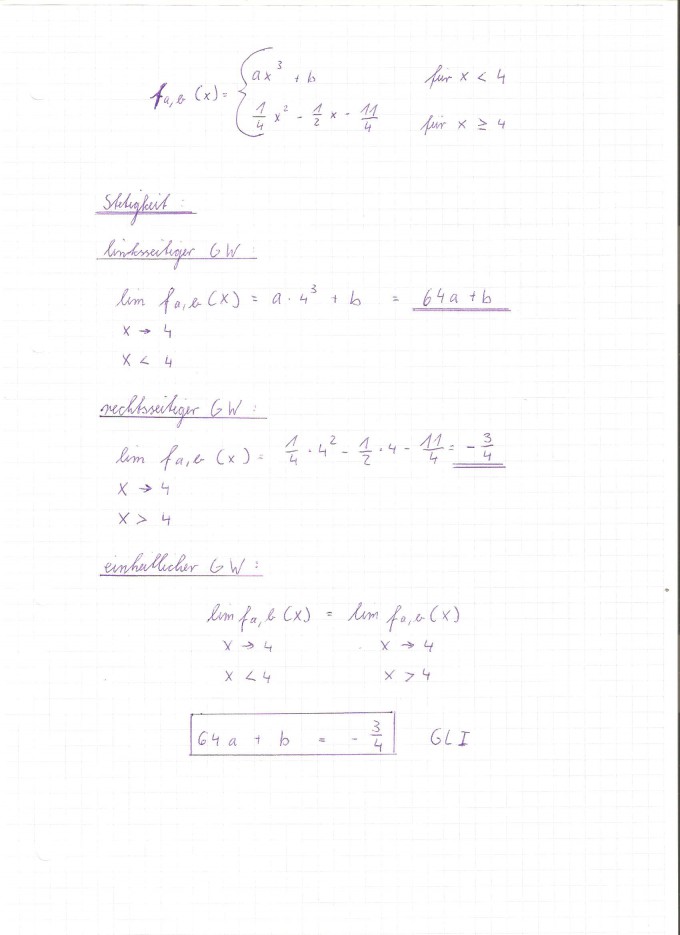 f a,b (x) = { ax³ + b für x < 4
1/4 x² - 1/2 x - 11/4 für x ≥ 4
Stetigkeit :
linksseitiger GW :
lim f a,b (x) = a · 4³ + b = 64a + b
x → 4
x < 4
rechtsseitiger GW :
lim f a,b (x) = 1/4 · 4² - 1/2 · 4 - 11/4 = - 3/4
x → 4
x > 4
einheitlicher GW :
lim f a,b (x) = lim f a,b (x)
x → 4 x → 4
x < 4 x > 4
64a + b = - 3/4 GL I